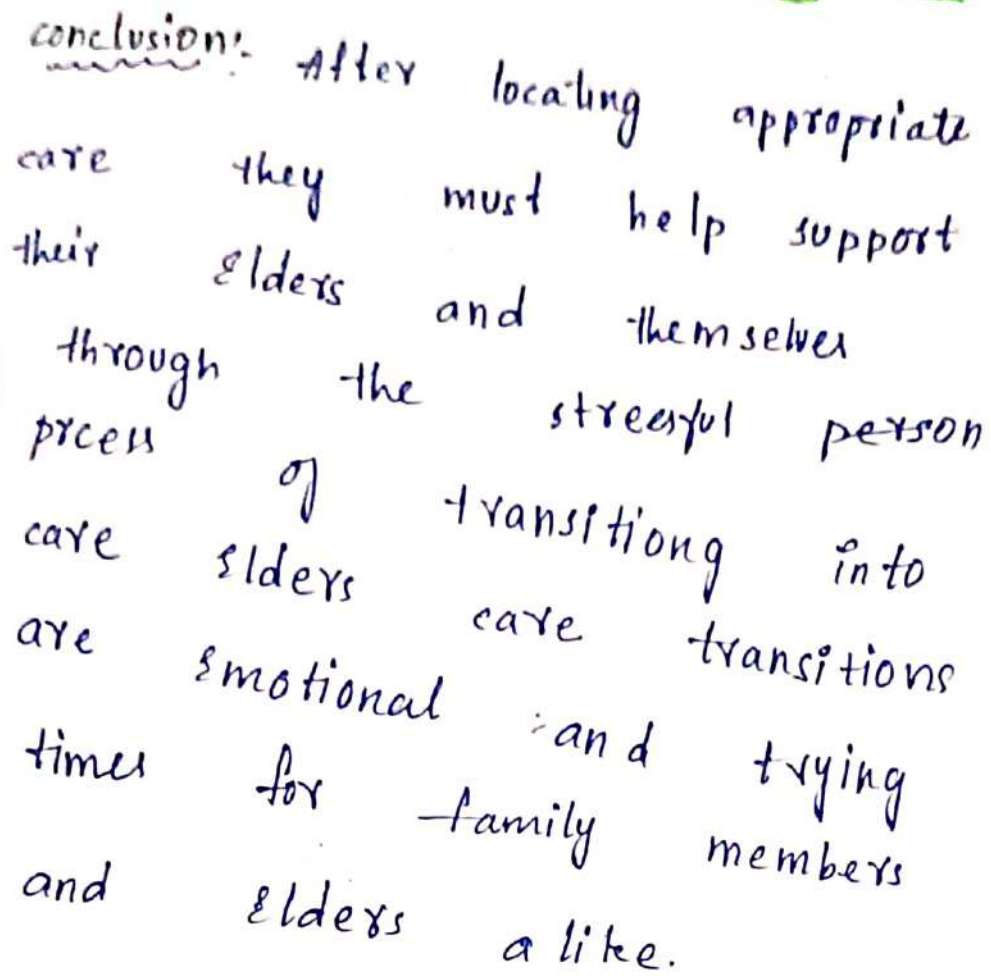 conclusion:- After locating appropriate
care they must help support
their Elders and themselves
through the streesful person
prcess of transitiong into
care Elders care transitions
are Emotional and trying
times for family members
and Elders alike.